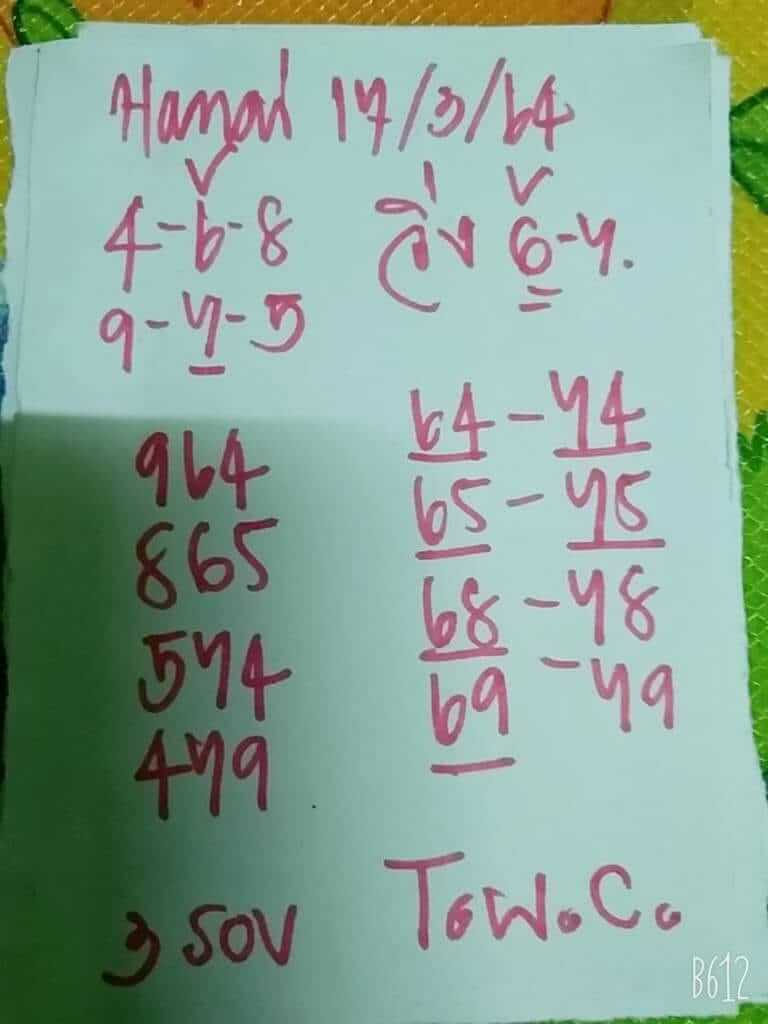 Hanoi 17/3/64
4-6-8 วิ่ง 6-7.
9-7-5
964 64-74
865 65-75
574 68-78
479 69-79
3 รอบ T.W.C.
B612